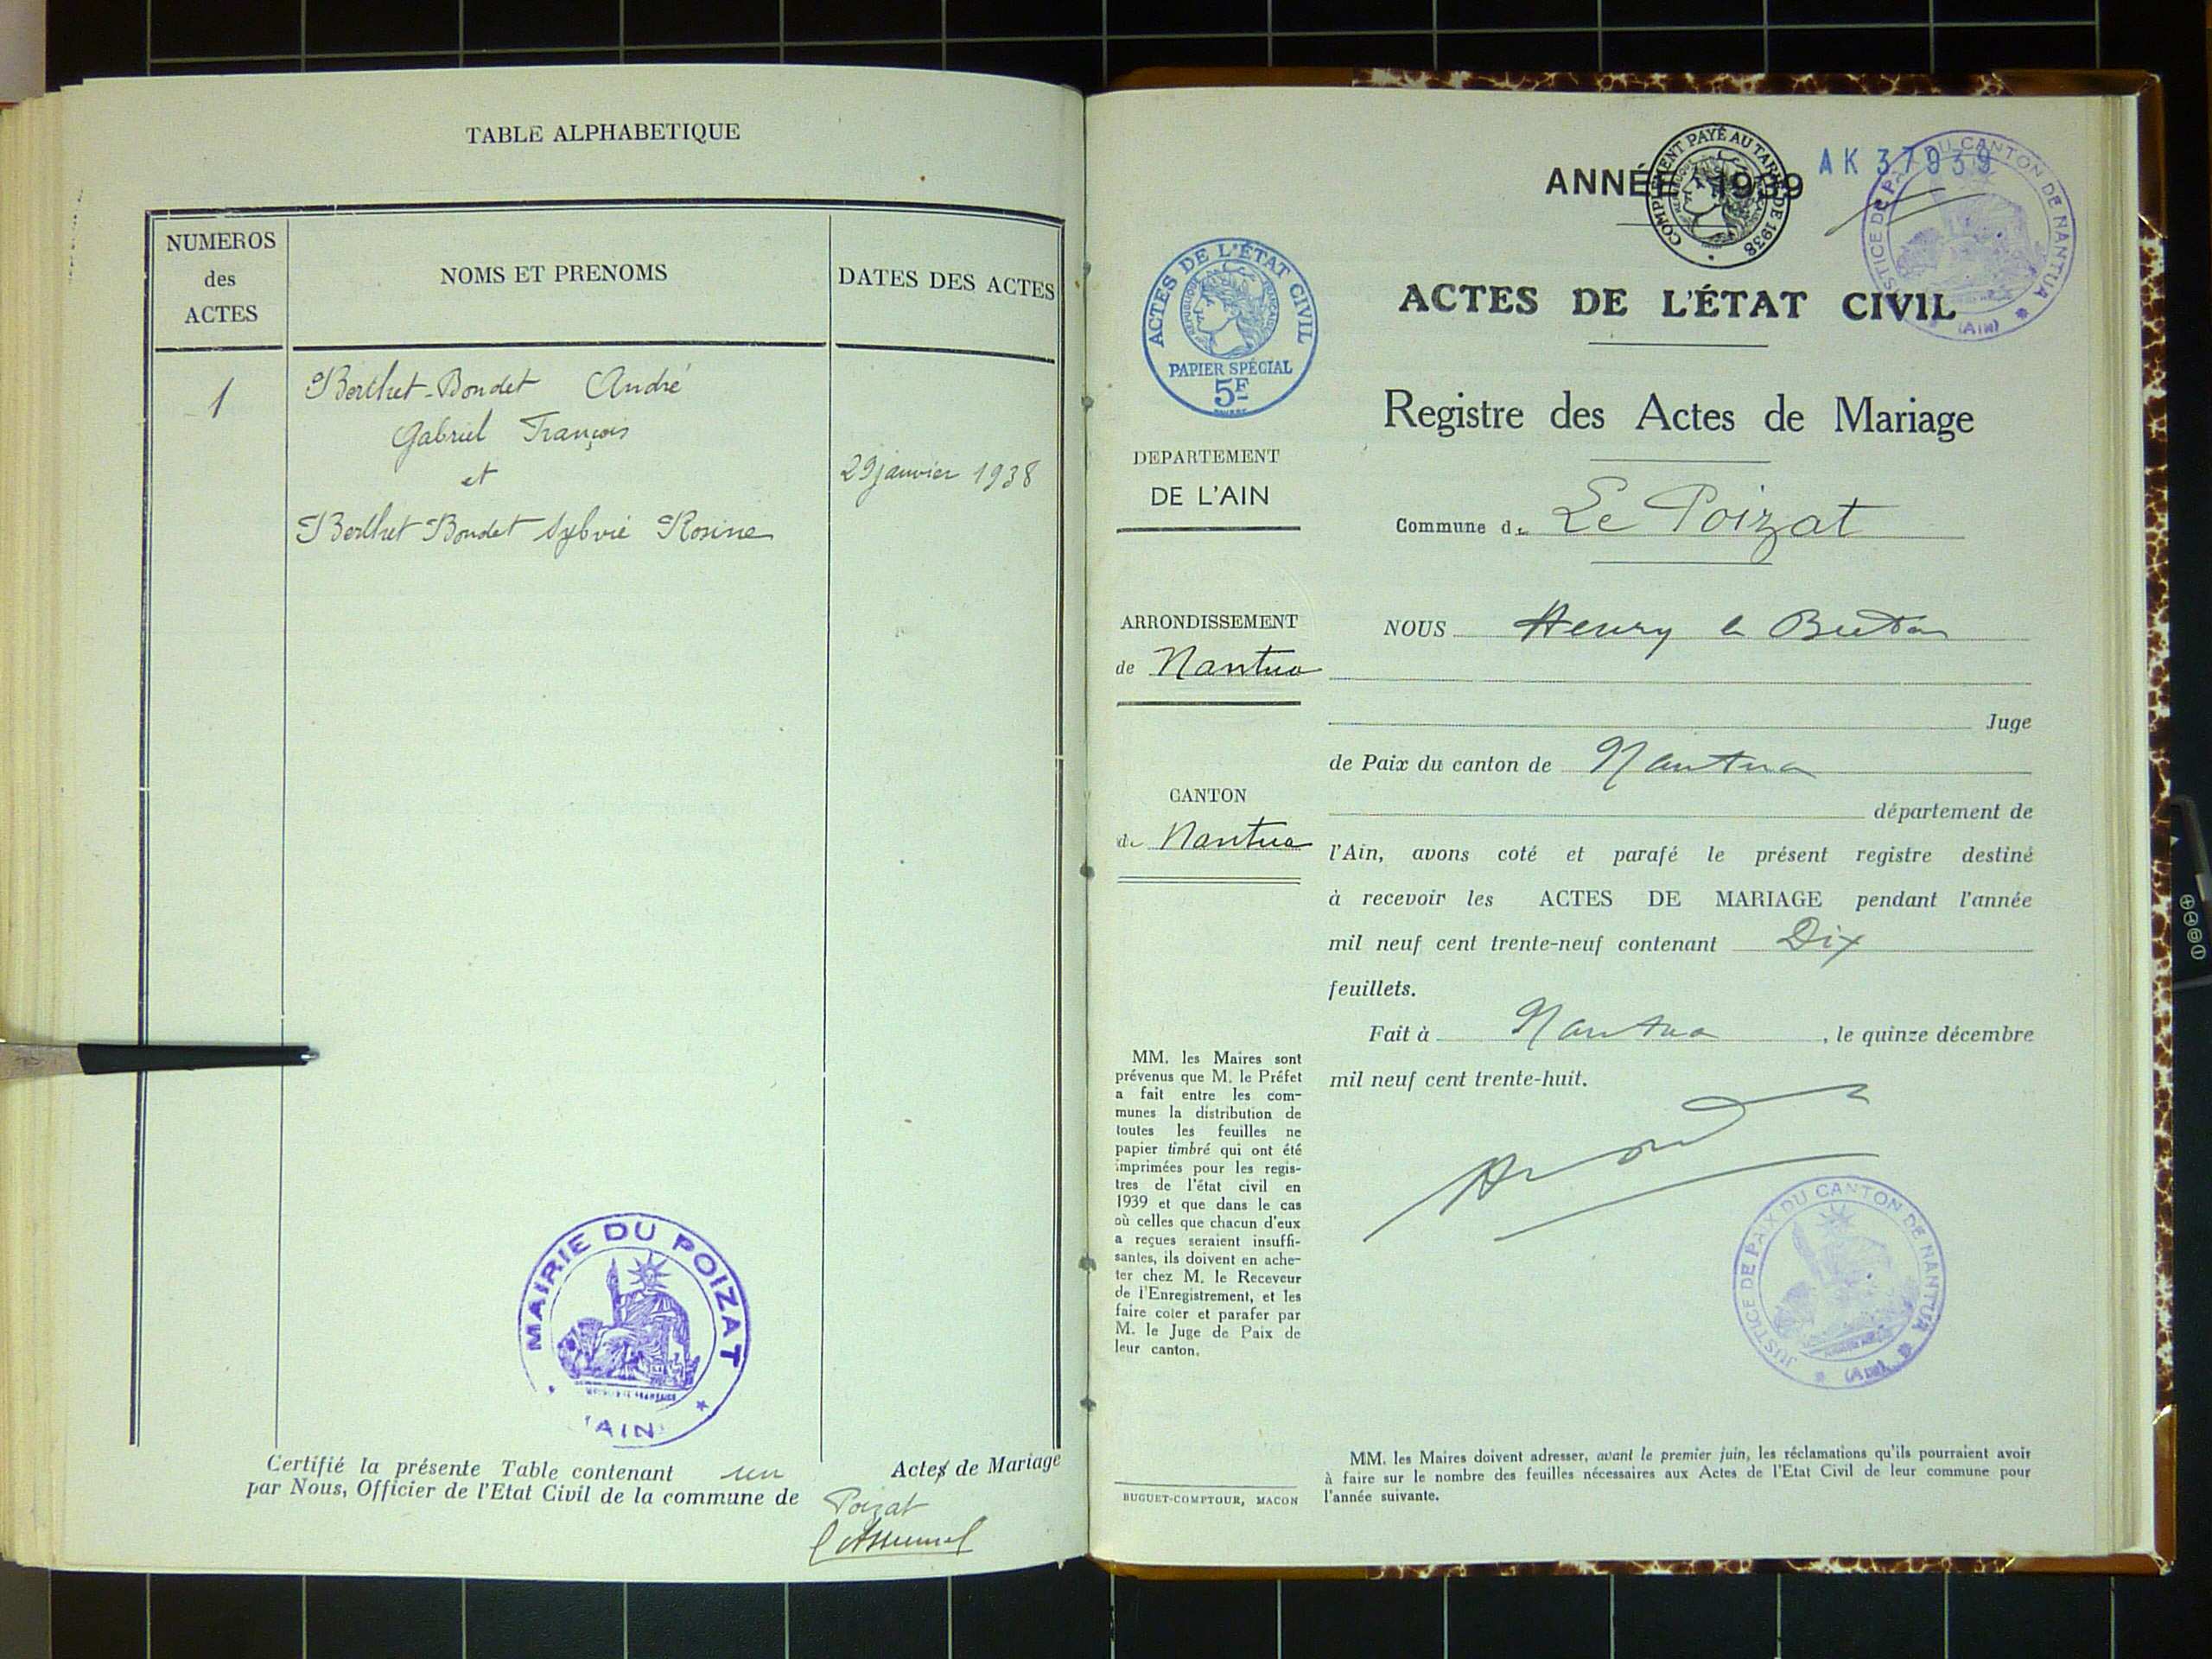 TABLE ALPHABETIQUE
NUMEROS
des
ACTES
NOMS ET PRENOMS
DATES DES ACTES
1
Berthet-Bondet André
Gabriel François
et
29 janvier 1938
Berthet Bondet Sylvie Rosine
MAIRIE DU POIZAT
AIN
Certifié la présente Table contenant un Actes de Mariage
par Nous, Officier de l'Etat Civil de la commune de
Poizat
ANNÉE 1939
COMPLÉMENT PAYÉ AU TARIF DE 1938
AK 37939
JUSTICE DE PAIX DU CANTON DE NANTUA
(Ain)
ACTES DE L'ÉTAT CIVIL
RÉPUBLIQUE FRANÇAISE
PAPIER SPÉCIAL
5F
ACTES DE L'ÉTAT CIVIL
Registre des Actes de Mariage
DEPARTEMENT
DE L'AIN
Commune de Le Poizat
ARRONDISSEMENT
de Nantua
CANTON
de Nantua
NOUS Henry le Breton
Juge
de Paix du canton de Nantua
département de
l'Ain, avons coté et parafé le présent registre destiné
à recevoir les ACTES DE MARIAGE pendant l'année
mil neuf cent trente-neuf contenant Dix
feuillets.
Fait à Nantua, le quinze décembre
mil neuf cent trente-huit.
MM. les Maires sont
prévenus que M. le Préfet
a fait entre les com-
munes la distribution de
toutes les feuilles ne
papier timbré qui ont été
imprimées pour les regis-
tres de l'état civil en
1939 et que dans le cas
où celles que chacun d'eux
a reçues seraient insuffi-
santes, ils doivent en ache-
ter chez M. le Receveur
de l'Enregistrement, et les
faire coter et parafer par
M. le Juge de Paix de
leur canton.
JUSTICE DE PAIX DU CANTON DE NANTUA
(Ain)
BUGUET-COMPTOUR, MACON
MM. les Maires doivent adresser, avant le premier juin, les réclamations qu'ils pourraient avoir
à faire sur le nombre des feuilles nécessaires aux Actes de l'Etat Civil de leur commune pour
l'année suivante.